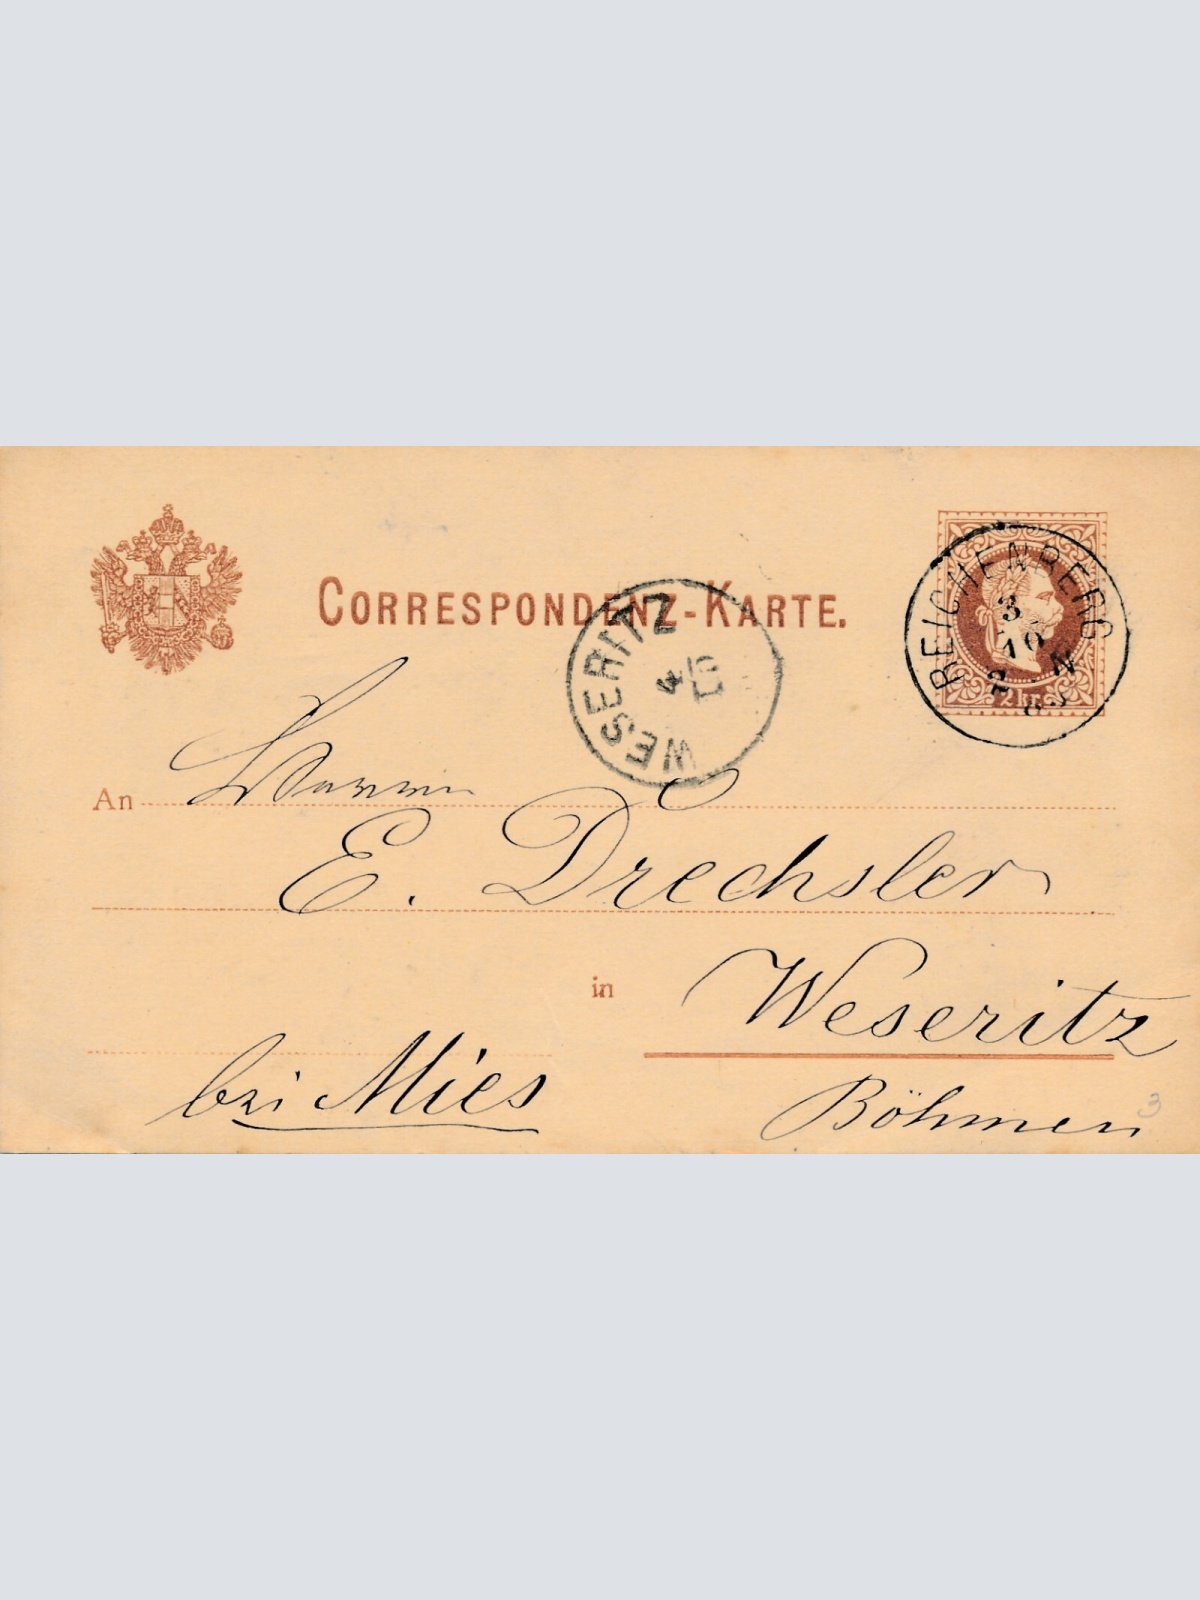 CORRESPONDENZ-KARTE.
REICHENBERG
3
10
2 N
82
2 kr
WESERITZ
4
10
An Herrn
E. Drechsler
in Weseritz
bei Mies
Böhmen
3